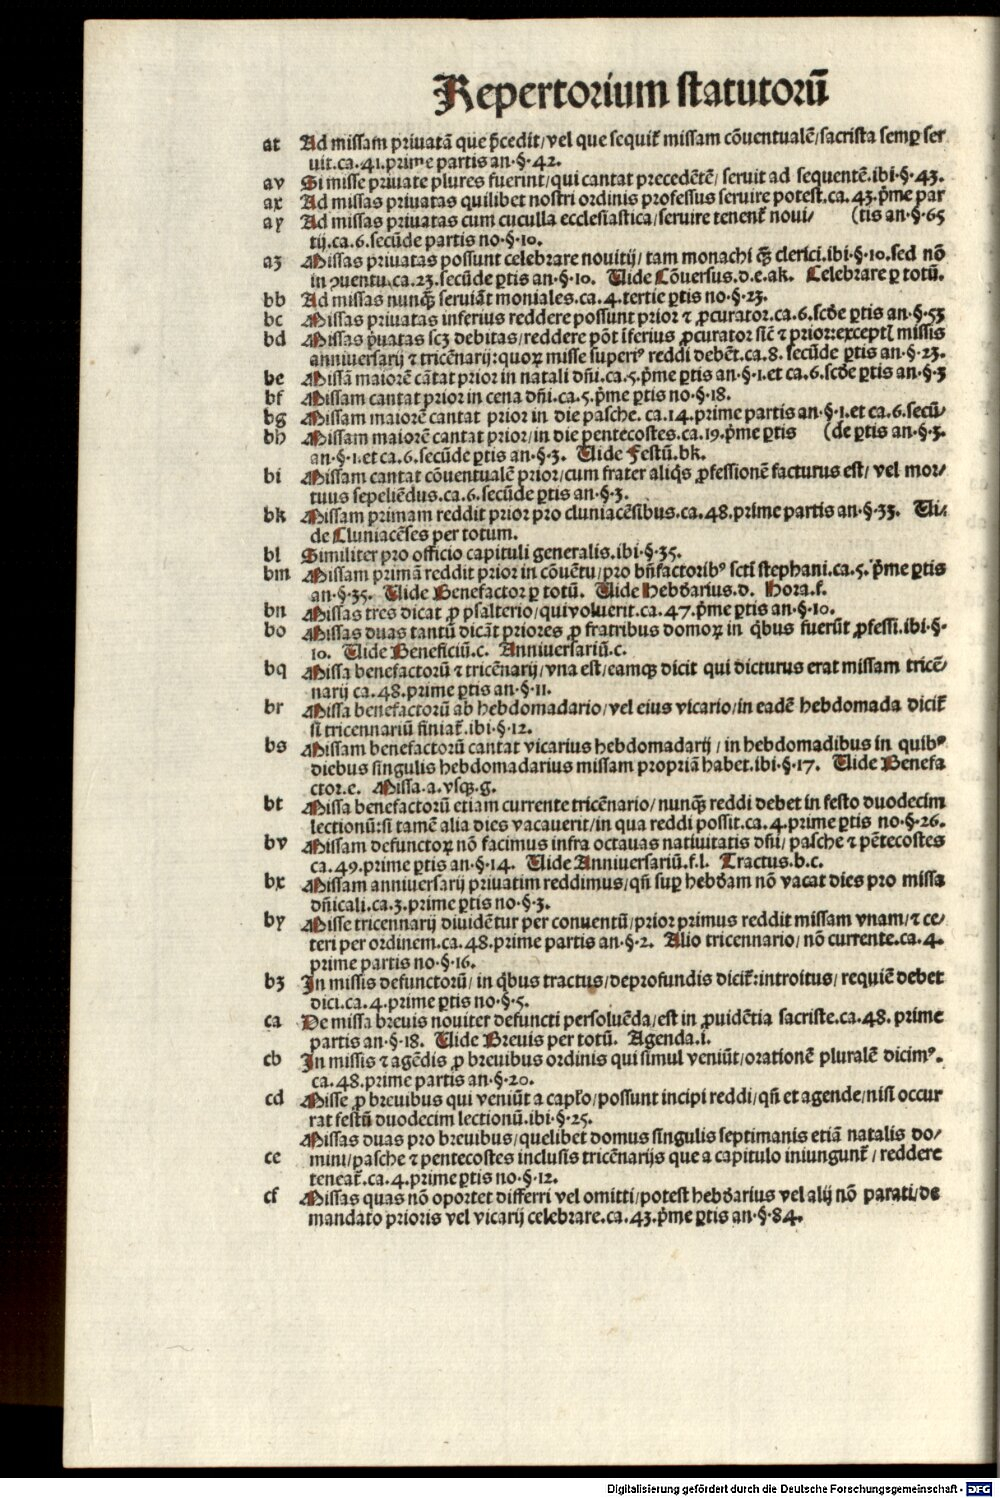 Repertorium statutorū
at Ad missam priuatā que p̄cedit/vel que sequit᷑ missam cōuentualē/sacrista semꝑ ser
uit.ca.41.prime partis an.§.42.
av Si misse priuate plures fuerint/qui cantat precedētē/ seruit ad sequentē.ibi.§.43.
ax Ad missas priuatas quilibet nostri ordinis professus seruire potest.ca.43.p̄me par
ay Ad missas priuatas cum cuculla ecclesiastica/seruire tenent᷑ noui/ (tis an.§.65
tij.ca.6.secūde partis no.§.10.
az Missas priuatas possunt celebrare nouitij/tam monachi q̄ȝ clerici.ibi.§.10.sed nō
in ꝯuentu.ca.23.secūde ꝑtis an.§.10. Uide Cōuersus.d.e.ak. Celebrare ꝑ totū.
bb Ad missas nunq̄ȝ seruiāt moniales.ca.4.tertie ꝑtis no.§.23.
bc Missas priuatas inferius reddere possunt prior ⁊ ꝓcurator.ca.6.scd̄e ꝑtis an.§.53
bd Missas p̄uatas scȝ debitas/reddere pōt īferius ꝓcurator sīc ⁊ prior:except̄ missis
anniuersarij ⁊ tricēnarij:quoꝝ misse superiꝰ reddi debēt.ca.8. secūde ꝑtis an.§.23.
be Missā maiorē cātat prior in natali dn̄i.ca.5.p̄me ꝑtis an.§.1.et ca.6.scd̄e ꝑtis an.§.3
bf Missam cantat prior in cena dn̄i.ca.5.p̄me ꝑtis no.§.18.
bg Missam maiorē cantat prior in die pasche. ca.14.prime partis an.§.1.et ca.6.secū/
bh Missam maiorē cantat prior/in die pentecostes.ca.19.p̄me ꝑtis (de ꝑtis an.§.3.
an.§.1.et ca.6.secūde ꝑtis an.§.3. Uide Festū.bk.
bi Missam cantat cōuentualē prior/cum frater aliq̄s ꝓfessionē facturus est/ vel mor/
tuus sepeliēdus.ca.6.secūde ꝑtis an.§.3.
bk Missam primam reddit prior pro cluniacēsibus.ca.48.prime partis an.§.33. Ui/
de Cluniacēses per totum.
bl Similiter pro officio capituli generalis.ibi.§.35.
bm Missam primā reddit prior in cōuētu/pro bn̄factoribꝰ scti stephani.ca.5.p̄me ꝑtis
an.§.35. Uide Benefactor ꝑ totū. Uide Hebd̄arius.d. Hora.f.
bn Missas tres dicat ꝓ psalterio/qui voluerit.ca.47.p̄me ꝑtis an.§.10.
bo Missas duas tantū dicāt priores ꝓ fratribus domoꝝ in q̄bus fuerūt ꝓfessi.ibi.§.
10. Uide Beneficiū.c. Anniuersariū.c.
bq Missa benefactorū ⁊ tricēnarij/vna est/eamqȝ dicit qui dicturus erat missam tricē/
narij ca.48.prime ꝑtis an.§.11.
br Missa benefactorū ab hebdomadario/vel eius vicario/in eadē hebdomada dicit᷑
si tricennariū finiat᷑.ibi.§.12.
bs Missam benefactorū cantat vicarius hebdomadarij/in hebdomadibus in quibꝰ
diebus singulis hebdomadarius missam propriā habet.ibi.§.17. Uide Benefa
ctor.e. Missa.a.vsqȝ.g.
bt Missa benefactorū etiam currente tricēnario/nunq̄ȝ reddi debet in festo duodecim
lectionū:si tamē alia dies vacauerit/in qua reddi possit.ca.4.prime ꝑtis no.§.26.
bv Missam defunctoꝝ nō facimus infra octauas natiuitatis dn̄i/pasche ⁊ pētecostes
ca.49.prime ꝑtis an.§.14. Uide Anniuersariū.f.l. Tractus.b.c.
bx Missam anniuersarij priuatim reddimus/qn̄ suꝑ hebd̄am nō vacat dies pro missa
dn̄icali.ca.3.prime ꝑtis no.§.3.
by Misse tricennarij diuidētur per conuentū/prior primus reddit missam vnam/⁊ ce/
teri per ordinem.ca.48.prime partis an.§.2. Alio tricennario/nō currente.ca.4.
prime partis no.§.16.
bz In missis defunctorū/in q̄bus tractus/deprofundis dicit᷑:introitus/requiē debet
dici.ca.4.prime ꝑtis no.§.5.
ca De missa breuis nouiter defuncti persoluēda/est in ꝓuidētia sacriste.ca.48. prime
partis an.§.18. Uide Breuis per totū. Agenda.i.
cb In missis ⁊ agēdis ꝓ breuibus ordinis qui simul veniūt/orationē pluralē dicimꝰ.
ca.48.prime partis an.§.20.
cd Misse ꝓ breuibus qui veniūt a capl̄o/possunt incipi reddi/qn̄ et agende/nisi occur
rat festū duodecim lectionū.ibi.§.25.
Missas duas pro breuibus/quelibet domus singulis septimanis etiā natalis do/
ce mini/pasche ⁊ pentecostes inclusis tricēnarijs que a capitulo iniungunt᷑/reddere
teneat᷑.ca.4.prime ꝑtis no.§.12.
cf Missas quas nō oportet differri vel omitti/potest hebd̄arius vel alij nō parati/de
mandato prioris vel vicarij celebrare.ca.43.p̄me ꝑtis an.§.84.
Digitalisierung gefördert durch die Deutsche Forschungsgemeinschaft - DFG